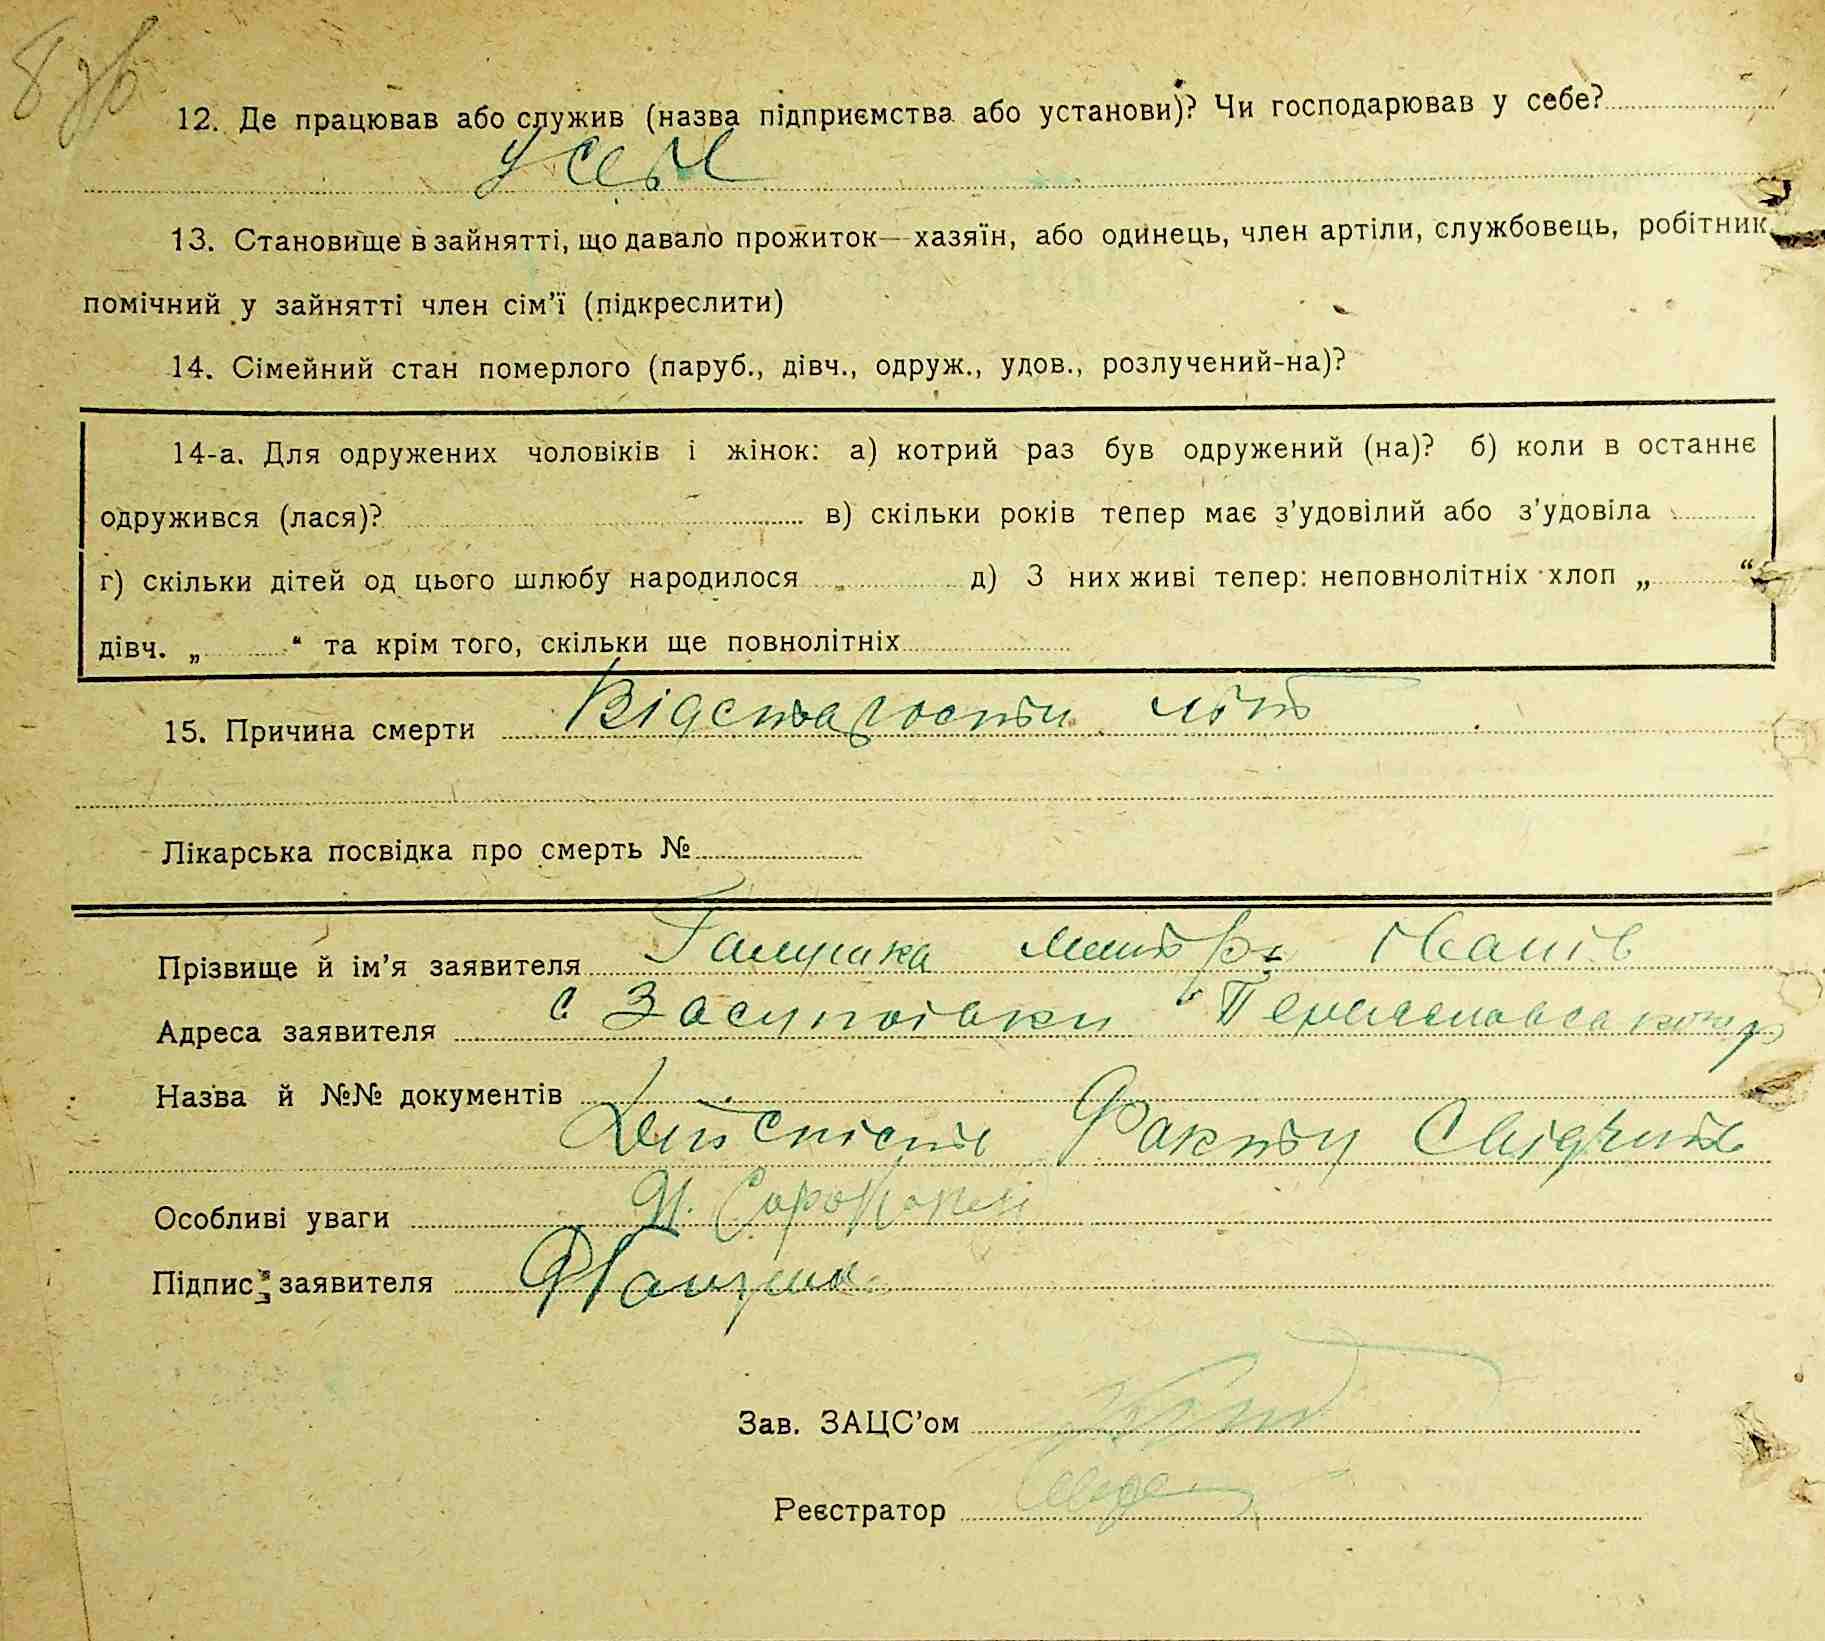 8 зв
12. Де працював або служив (назва підприємства або установи)? Чи господарював у себе?
У себе
13. Становище в зайнятті, що давало прожиток—хазяїн, або одинець, член артіли, службовець, робітник,
помічний у зайнятті член сім'ї (підкреслити)
14. Сімейний стан померлого (паруб., дівч., одруж., удов., розлучений-на)?
14-а. Для одружених чоловіків і жінок: а) котрий раз був одружений (на)? б) коли в останнє
одружився (лася)? в) скільки років тепер має з'удовілий або з'удовіла
г) скільки дітей од цього шлюбу народилося д) З них живі тепер: неповнолітніх хлоп „ “
дівч. „ “ та крім того, скільки ще повнолітніх
15. Причина смерти Відстарости літ
Лікарська посвідка про смерть №
Прізвище й ім'я заявителя Галушка Митр. Іванів
Адреса заявителя с Засупоївки
Назва й №№ документів
Факту Свідчить
Особливі уваги
Підпис заявителя
Зав. ЗАЦС'ом
Реєстратор